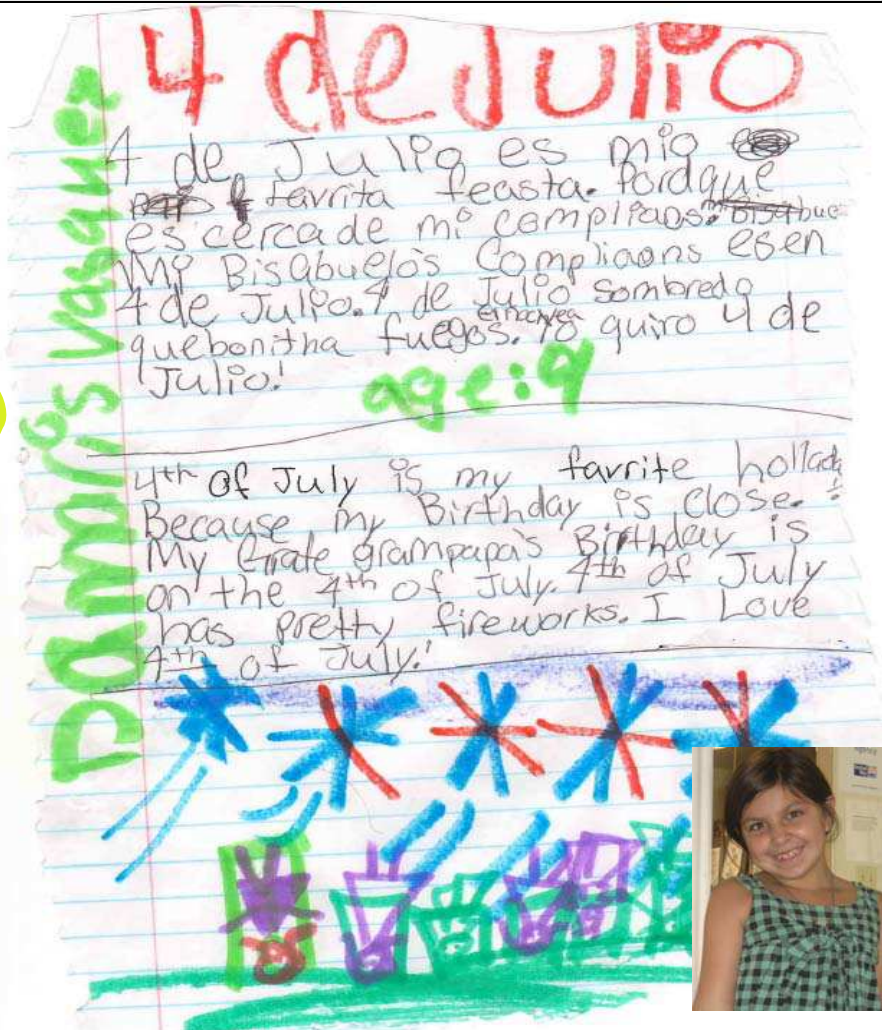 4 de Julio
Damaris Vasquez
4 de Julio es mio
favrita feasta. Pordque
es cerca de mi compliaons.
My Bisabuelo's Compliaons es en
4 de Julio. 4 de Julio sombredo
quebonitha fuegos. Yo quiro 4 de
Julio!
age: 9
4th of July is my favrite hollada
Because my Birthday is close.
My Grate grampapa's Birthday is
on the 4th of July. 4th of July
has pretty fireworks. I Love
4th of July!